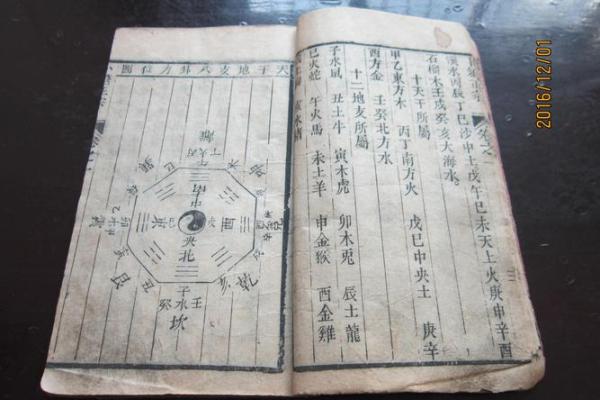 溪水丙辰丁巳沙中土戊午巳未天上火庚申辛酉
石榴木壬戌癸亥大海水
十天干所屬
甲乙東方木 丙丁南方火 戊巳中央土 庚辛
西方金 壬癸北方水
十二地支所屬
子水鼠 丑土牛 寅木虎 卯木兎 辰土龍
巳火蛇 午火馬 未土羊 申金猴 酉金雞
亥水猪
天干地支八卦方位圖
離
南
中
央
北
東
西
壬
子水
癸
坎
乾
艮
丑
2016/12/01